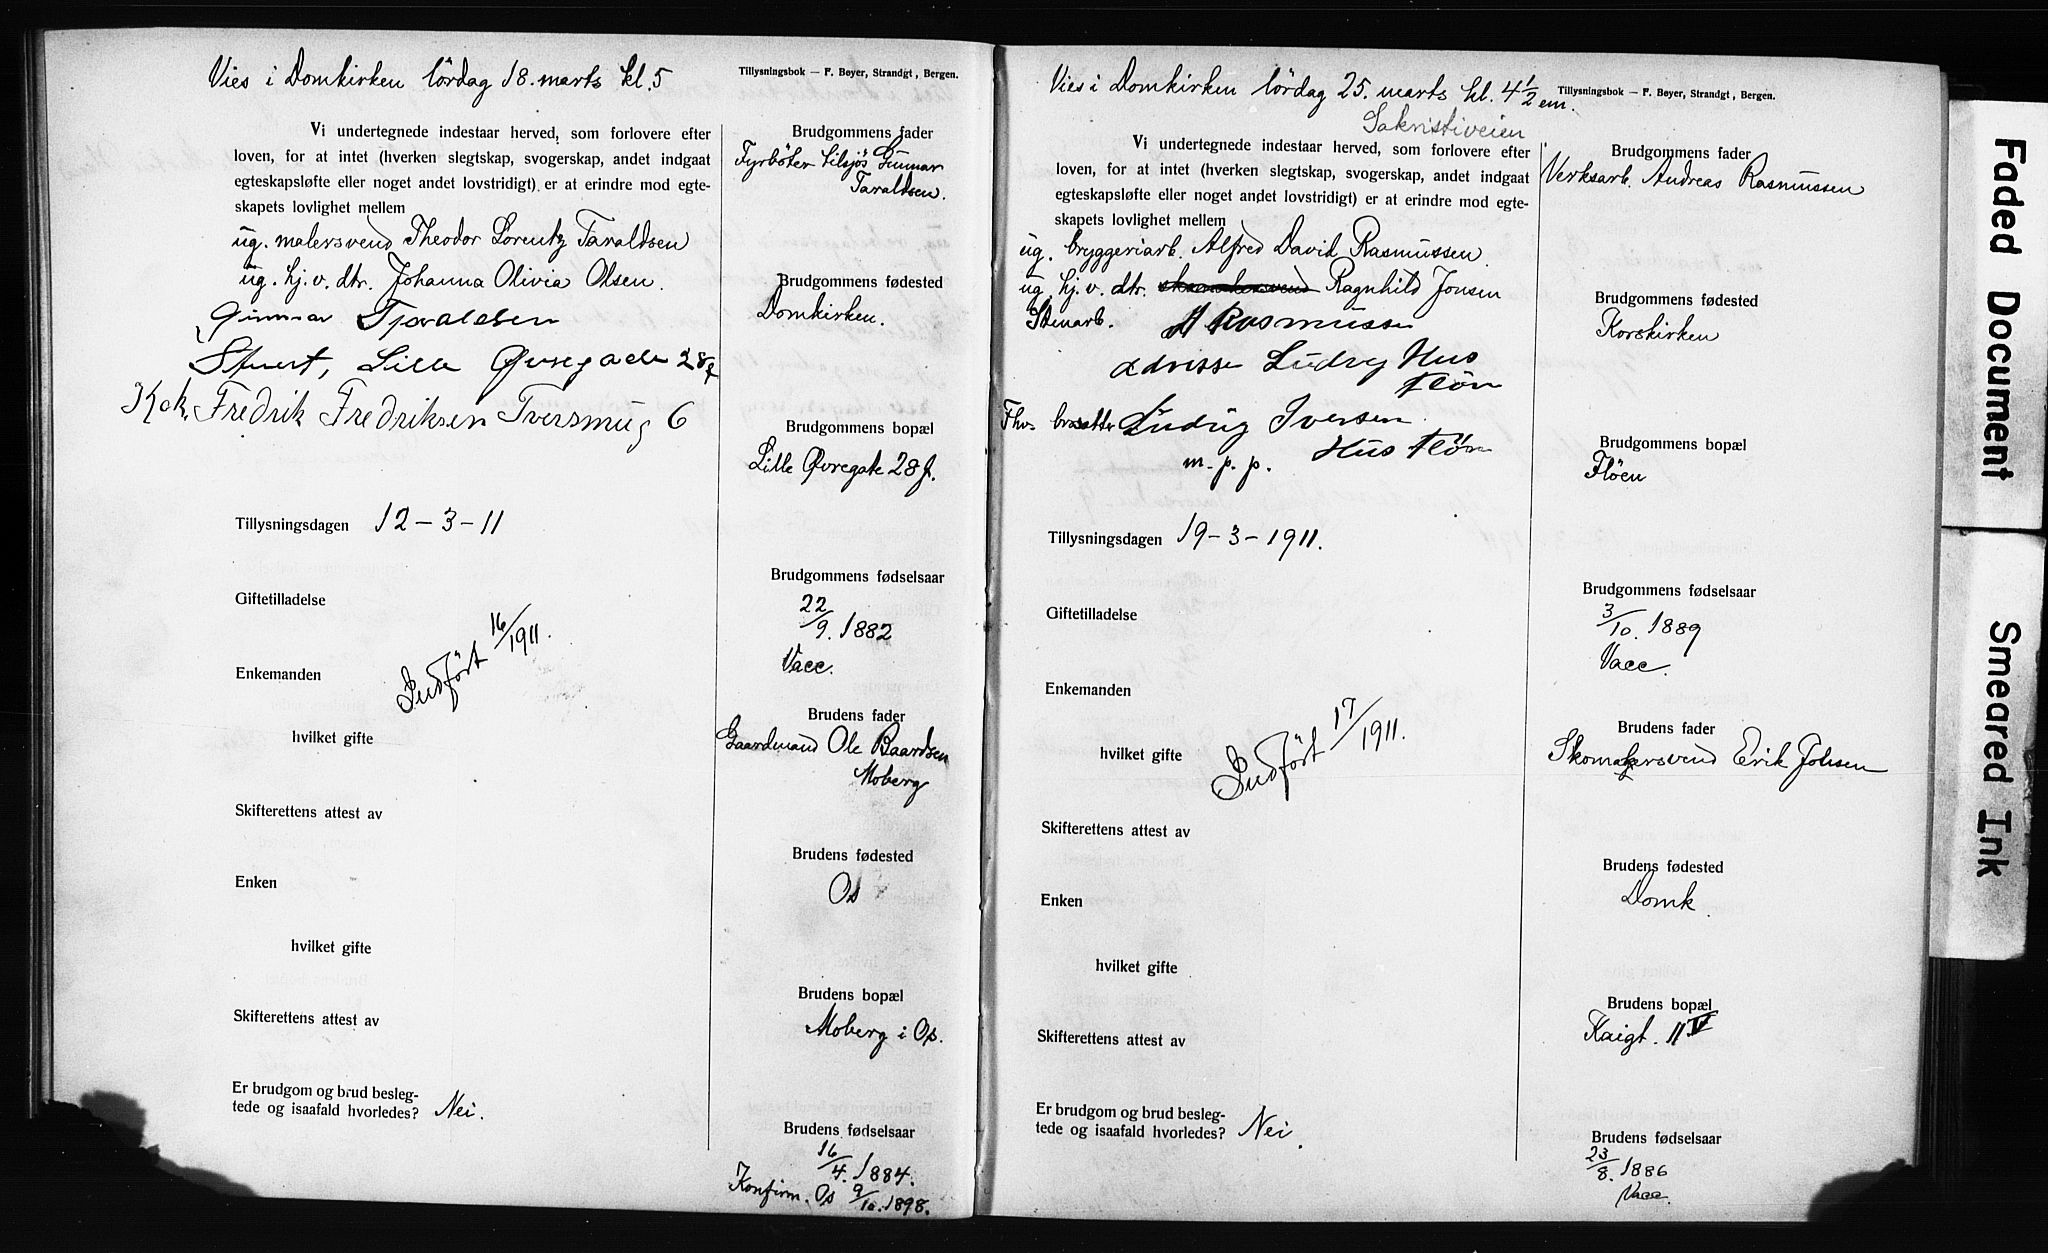 Vies i Domkirken lördag 18. marts kl. 5
Tillysningsbok — F. Bøyer, Strandgt, Bergen.
Vi undertegnede indestaar herved, som forlovere efter
loven, for at intet (hverken slegtskap, svogerskap, andet indgaat
egteskapsløfte eller noget andet lovstridigt) er at erindre mod egte-
skapets lovlighet mellem
ug. malersvend Theodor Lorentz Taraldsen
ug. hj. v. dtr. Johanna Olivia Olsen.
Gunnar Tjaraldsen
Stuert, Lille Øvregade 28
Kok Fredrik Fredriksen 6
Tillysningsdagen 12-3-11
Giftetilladelse
Indført 16/1911.
Enkemanden
hvilket gifte
Skifterettens attest av
Enken
hvilket gifte
Skifterettens attest av
Er brudgom og brud besleg-
tede og isaafald hvorledes? Nei.
Brudgommens fader
Fyrböter tilsjös Gunnar
Taraldsen.
Brudgommens fødested
Domkirken.
Brudgommens bopæl
Lille Øvregate 28 f.
Brudgommens fødselsaar
22/9. 1882
Vacc.
Brudens fader
Gaardmand Ole Baardsen
Moberg
Brudens fødested
Os
Brudens bopæl
Moberg i Os.
Brudens fødselsaar
16/4. 1884.
Konfirm. Os 9/10. 1898.
Vies i Domkirken lördag 25. marts kl. 4 1/2 em.
Tillysningsbok — F. Bøyer, Strandgt, Bergen.
Sakristiveien
Vi undertegnede indestaar herved, som forlovere efter
loven, for at intet (hverken slegtskap, svogerskap, andet indgaat
egteskapsløfte eller noget andet lovstridigt) er at erindre mod egte-
skapets lovlighet mellem
ug. bryggeriarb. Alfred David Rasmussen.
ug. hj. v. dtr. Ragnhild Jonsen
Stenarb. A Rasmussen
adrisse Ludvig Hus
Fløn
Ludvig Iversen
m. p. p. Hus Fløn
Tillysningsdagen 19-3-1911.
Giftetilladelse
Enkemanden
Indført 17/1911.
hvilket gifte
Skifterettens attest av
Enken
hvilket gifte
Skifterettens attest av
Er brudgom og brud besleg-
tede og isaafald hvorledes? Nei.
Brudgommens fader
Verksarb. Andreas Rasmussen
Brudgommens fødested
Korskirken
Brudgommens bopæl
Flöen
Brudgommens fødselsaar
3/10. 1889
Vacc.
Brudens fader
Skomakersvend Erik Johsen
Brudens fødested
Domk.
Brudens bopæl
Kaigt. 11 V
Brudens fødselsaar
23/8. 1886
Vacc.
Faded Document
Smeared Ink